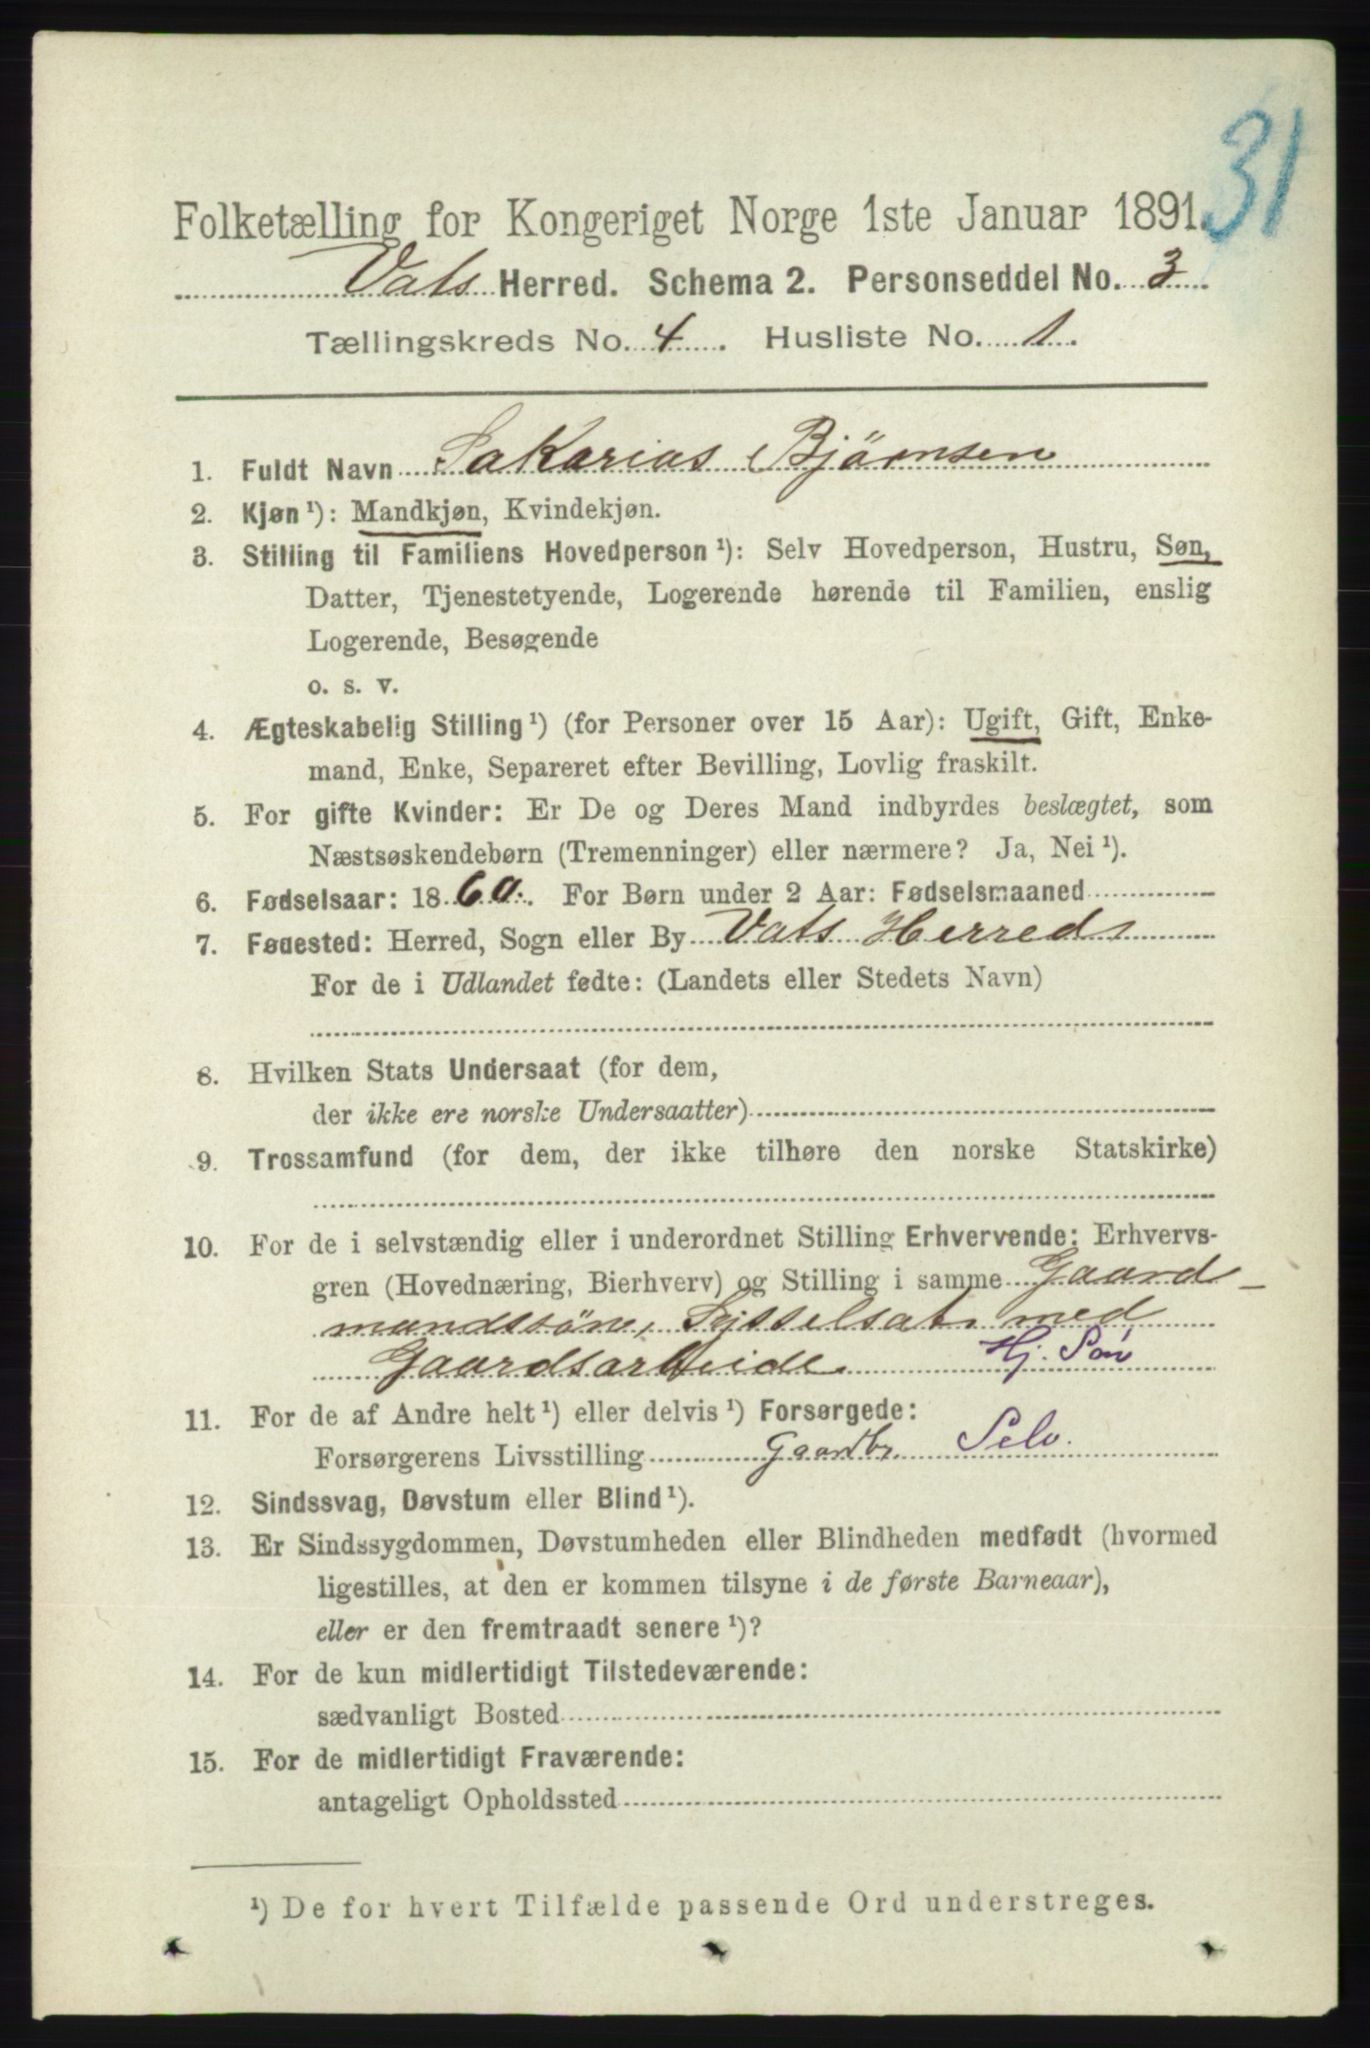 31
Folketælling for Kongeriget Norge 1ste Januar 1891.
Vats Herred. Schema 2. Personseddel No. 3.
Tællingskreds No. 4. Husliste No. 1.
1. Fuldt Navn Sakarias Bjömsen
2. Kjøn¹): Mandkjøn, Kvindekjøn.
3. Stilling til Familiens Hovedperson¹): Selv Hovedperson, Hustru, Søn,
Datter, Tjenestetyende, Logerende hørende til Familien, enslig
Logerende, Besøgende
o. s. v.
4. Ægteskabelig Stilling¹) (for Personer over 15 Aar): Ugift, Gift, Enke-
mand, Enke, Separeret efter Bevilling, Lovlig fraskilt.
5. For gifte Kvinder: Er De og Deres Mand indbyrdes beslægtet, som
Næstsøskendebørn (Tremenninger) eller nærmere? Ja, Nei¹).
6. Fødselsaar: 1860. For Børn under 2 Aar: Fødselsmaaned
7. Fødested: Herred, Sogn eller By Vats Herred
For de i Udlandet fødte: (Landets eller Stedets Navn)
8. Hvilken Stats Undersaat (for dem,
der ikke ere norske Undersaatter)
9. Trossamfund (for dem, der ikke tilhøre den norske Statskirke)
10. For de i selvstændig eller i underordnet Stilling Erhvervende: Erhvervs-
gren (Hovednæring, Bierhverv) og Stilling i samme Gaard-
mandssön, Sysselsat med
Gaardsarbeide. Hj. Søn
11. For de af Andre helt¹) eller delvis¹) Forsørgede:
Forsørgerens Livsstilling Gaardbr. Selv.
12. Sindssvag, Døvstum eller Blind¹).
13. Er Sindssygdommen, Døvstumheden eller Blindheden medfødt (hvormed
ligestilles, at den er kommen tilsyne i de første Barneaar),
eller er den fremtraadt senere¹)?
14. For de kun midlertidigt Tilstedeværende:
sædvanligt Bosted
15. For de midlertidigt Fraværende:
antageligt Opholdssted
¹) De for hvert Tilfælde passende Ord understreges.